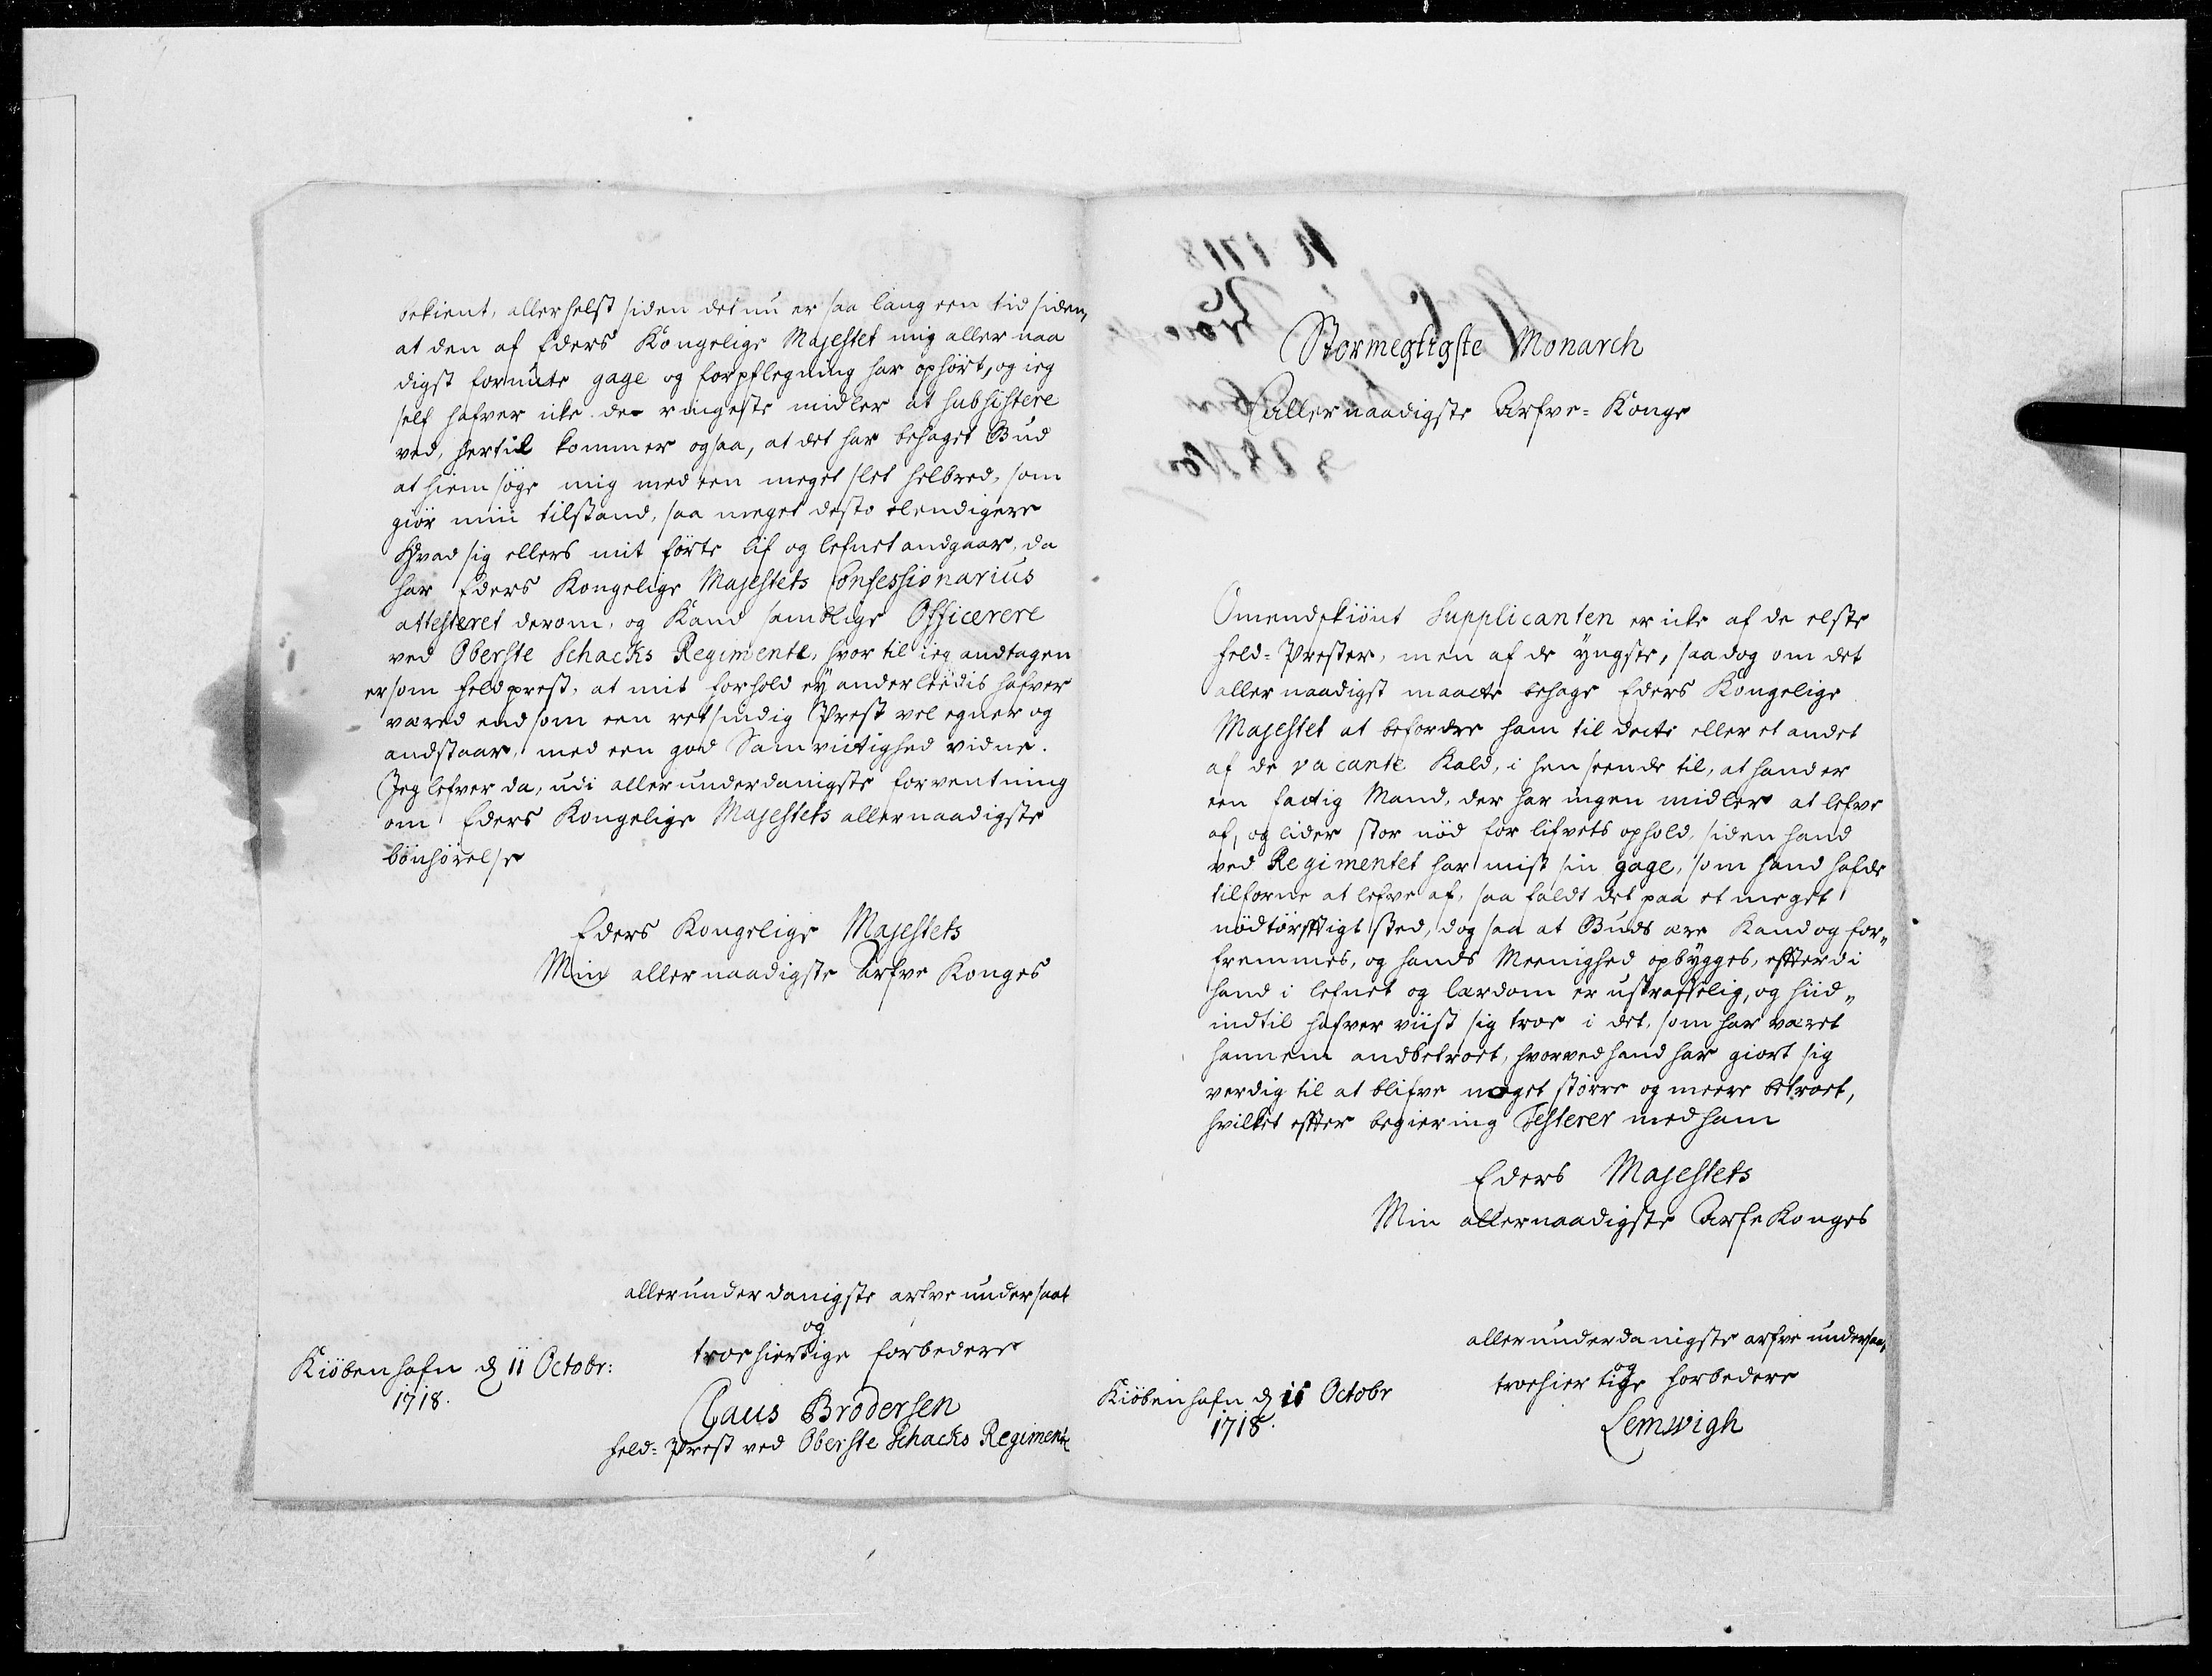 bekient, allerhelst siden det nu er saa lang een tid siden,
at den af Eders Kongelige Majestet mig aller naa
digst forundte gage og forpflegning har ophört, og ieg
self hafver icke de ringeste midler at subsistere
ved, hertil kommer ogsaa, at det har behaget Gud
at hiemsöge mig med een meget slet helbred, som
giör min tilstand, saa meget desto elendigere
Hvad sig ellers mit förte lif og lefnet andgaar, da
har Eders Kongelige Majestets Confessionarius
attesteret derom, og Kand samtlige Officerere
ved Oberste Schacks Regimente, hvor til ieg andtagen
er som feldprest, at mit forhold ey anderleedis hafver
væred end som een retsindig Prest vel egner og
andstaar, med een god Samvittighed vidne.
Jeg lefver da, udi allerunderdanigste forventning
om Eders Kongelige Majestets allernaadigste
bönhörelse
Eders Kongelige Majestets
Min allernaadigste Arfve Konges
allerunderdanigste arfve undersaat
og
troehiertige forbedere
Kiöbenhafn d 11 Octobr:
1718.
Claus Brodersen
feld-Prest ved Oberste Schacks Regimente
Stormegtigste Monarch
Allernaadigste Arfve-Konge
Omendskiönt Supplicanten er icke af de elste
feld-Prester, men af de yngste, saa dog om det
allernaadigst maatte behage Eders Kongelige
Majestet at befordre ham til dette eller et andet
af de vacante Kald, i henseende til, at hand er
een fattig Mand, der har ingen midler at lefve
af, og lider stor nöd for lifvets ophold, siden hand
ved Regimentet har mist sin gage, som hand hafde
tilforne at lefve af, saa faldt det paa et meget
nödtörfftigt sted, dog saa at Guds ære Kand og for„
fremmes, og hands Meenighed opbygges, effterdi
hand i lefnet og lærdom er ustraffelig, og hid„
indtil hafver viist sig troe i det, som har været
hannem andbetroet, hvorved hand har giort sig
verdig til at blifve noget större og meere betroet,
hvilket effter begiering Testerer med ham
Eders Majestets
Min allernaadigste ArfveKonges
allerunderdanigste arfve undersaa,
og
troehiertige forbedere
Kiöbenhafn d 11 Octobr
1718.
Lemwigh